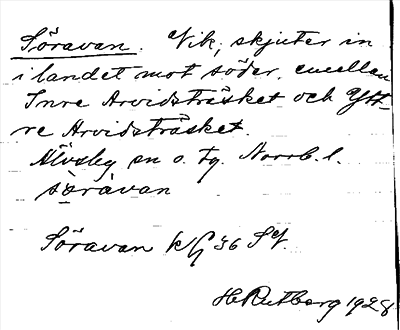 Söravan. Vik, skjuter in
i landet mot söder, emellan
Inre Arvidsträsket och Ytt-
re Arvidsträsket.
Älvsby sn o. tg. Norrb. l.
sö̀ràvan
Söravan kG 36 SV.
H Rutberg 1928